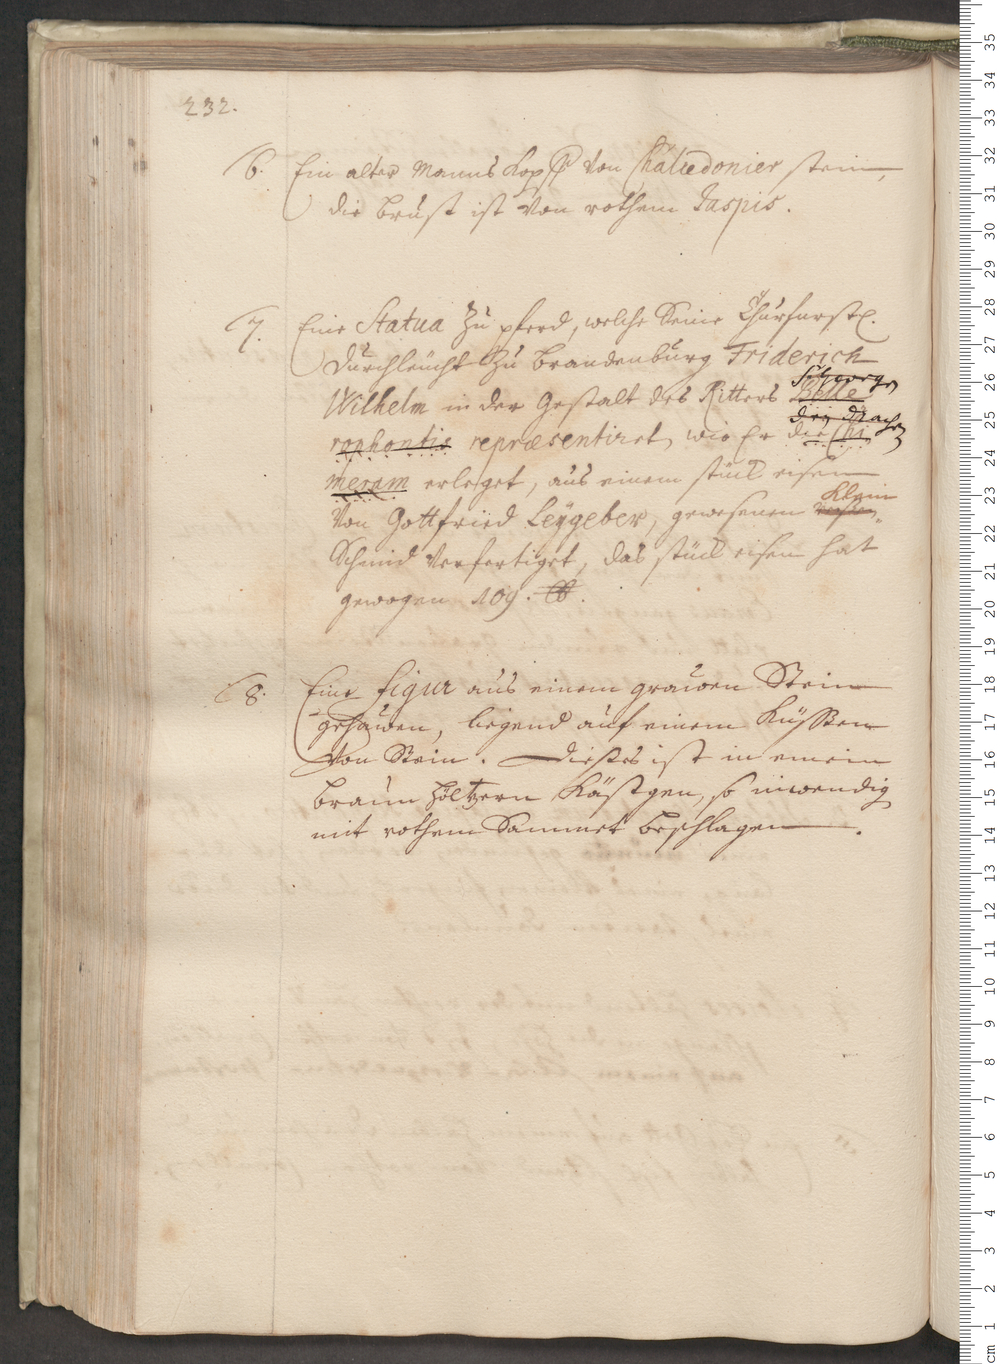 232.
6. Ein alter Manns Kopff von Chalcedonier stein,
die Brust ist von rothem Jaspis.
7. Eine Statua zu pferd, welche Seine Churfürstl.
Durchleücht zu Brandenburg Friderich
Wilhelm in der Gestalt des Ritters Belle
rophontis repræsentiret, wie Er die Chi
meram erleget, aus einem stück eisen
Klein
von Gottfried Leÿgeber, gewesenen
Schmid verfertiget, das stück eisen hat
gewogen 109. ℔.
8. Eine figur aus einem grauen Stein
gehauen, ligend auf einem Küssen
von Stein. Dieses ist in einem
braun höltzern Kästgen, so inwendig
mit rothem Sammet beschlagen.